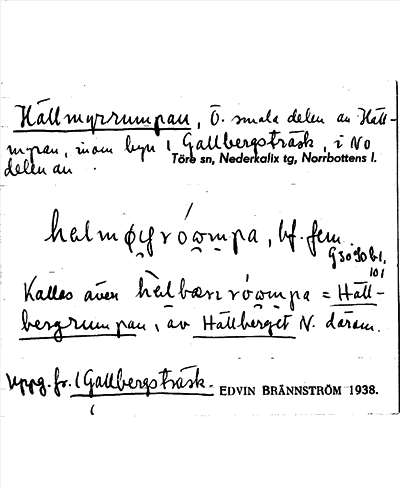 Hällmyrrumpan, Ö. smala delen av Häll-
myran, inom byn i Gallbergsträsk, i NO
delen av
Töre sn, Nederkalix tg, Norrbottens l.
bf. fem.
101
Kallas även = Häll-
bergrumpan, av Hällberget N. därom.
uppg. fr. Gallbergsträsk.
EDVIN BRÄNNSTRÖM 1938.